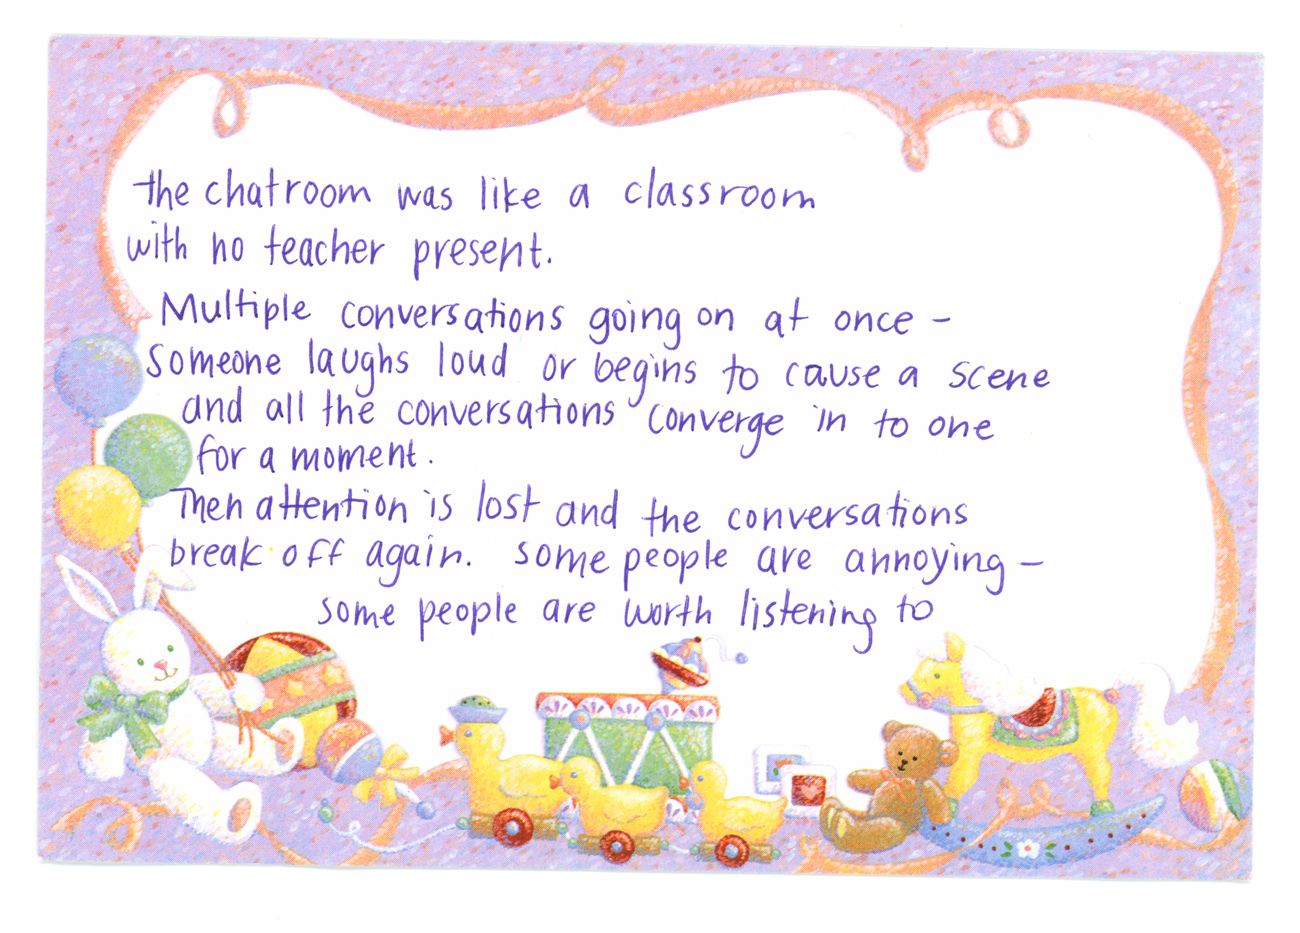 the chatroom was like a classroom
with no teacher present.
Multiple conversations going on at once -
Someone laughs loud or begins to cause a scene
and all the conversations converge in to one
for a moment.
Then attention is lost and the conversations
break off again. some people are annoying -
some people are worth listening to